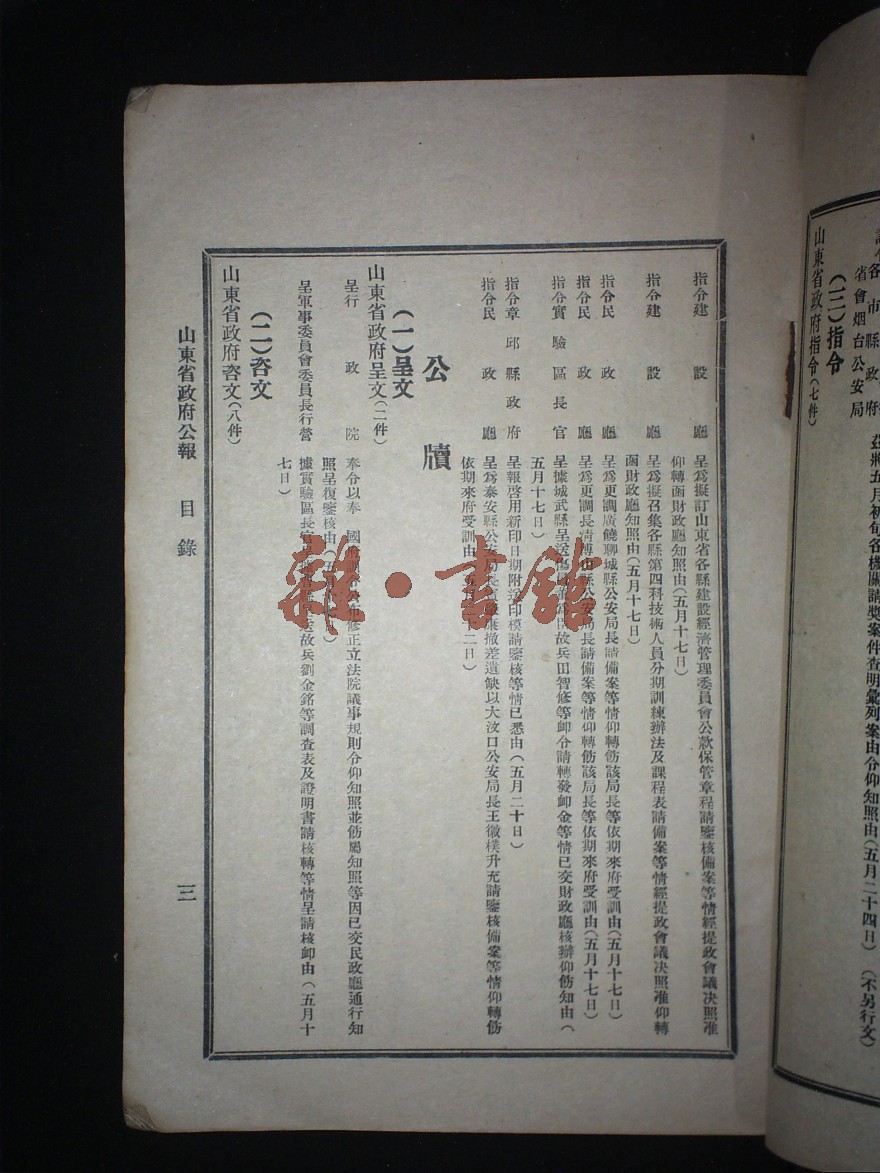 省會烟台公安局
各市縣政府
茲將五月初旬各機關請獎案件查明彙列案由令仰知照由(五月二十四日) (不另行文)
(三)指令
山東省政府指令(七件)
指令建設廳 呈爲擬訂山東省各縣建設經濟管理委員會公款保管章程請鑒核備案等情經提政會議决照准
仰轉函財政廳知照由(五月十七日)
指令建設廳 呈爲擬召集各縣第四科技術人員分期訓練辦法及課程表請備案等情經提政會議决照准仰轉
函財政廳知照由(五月十七日)
指令民政廳 呈爲更調廣饒聊城縣公安局長請備案等情仰轉飭該局長等依期來府受訓由(五月十七日)
指令民政廳 呈爲更調長清博山縣公安局長請備案等情仰轉飭該局長等依期來府受訓由(五月十七日)
指令實驗區長官 呈據城武縣呈送傷故兵田智修等卹令請轉發卹金等情已交財政廳核辦仰飭知由(
五月十七日)
指令章邱縣政府 呈報啓用新印日期附送印模請鑒核等情已悉由(五月二十日)
指令民政廳 呈爲泰安縣公安局長撤差遺缺以大汶口公安局長王徽樸升充請鑒核備案等情仰轉飭
依期來府受訓由(五月二十二日)
公牘
(一)呈文
山東省政府呈文(二件)
呈行政院 奉令以奉 國府公布修正立法院議事規則令仰知照並飭屬知照等因已交民政廳通行知
照呈復鑒核由(五月日)
呈軍事委員會委員長行營 據實驗區長官呈送故兵劉金銘等調查表及證明書請核轉等情呈請核卹由(五月十
七日)
(二)咨文
山東省政府咨文(八件)
山東省政府公報 目錄 三
雜·書館